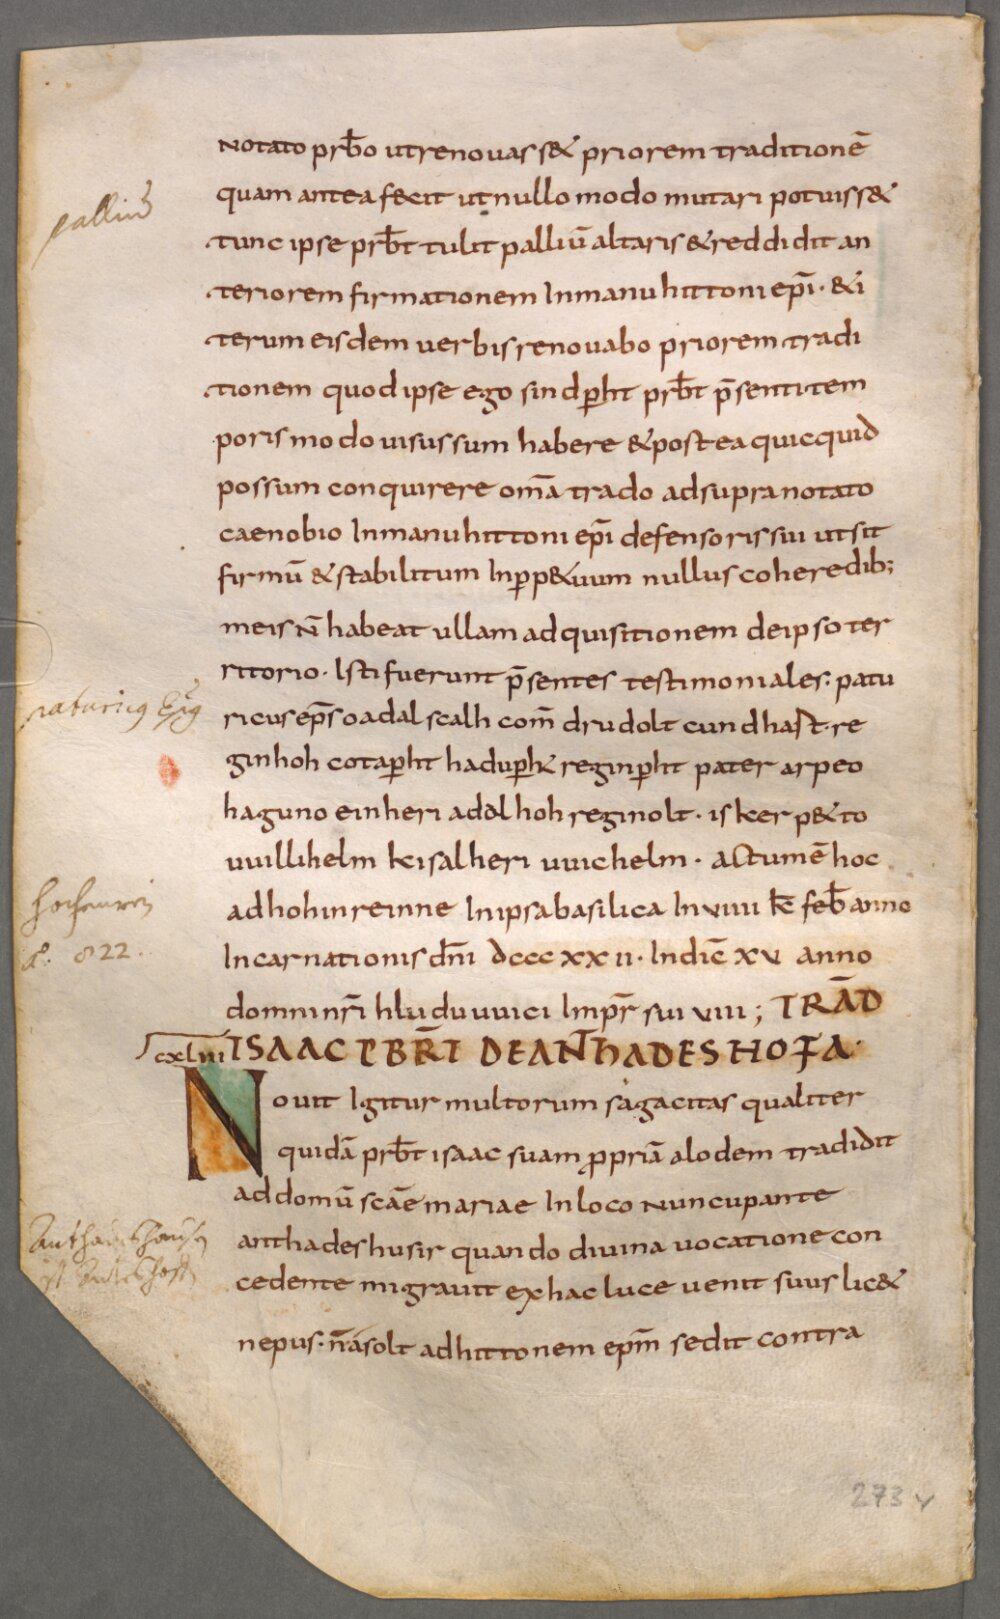 notato prƀo ut renouass& priorem traditionē
quam antea fecit ut nullo modo mutari potuiss&
palliū
tunc ipse prƀt tulit palliū altaris & reddidit an
teriorem firmationem In manu hittoni epī · & i
terum eisdem uerbis renouabo priorem tradi
tionem quod ipse ego sindꝑht prƀt p̄senti tem
poris modo uisus sum habere & postea quicquid
possum conquirere om̄a trado ad supra notato
caenobio In manu hittoni epī defensoris sui ut sit
firmū & stabilitum Inꝑp&uum nullus coheredib;
meis n̄ habeat ullam adquisitionem de ipso ter
ritorio · Isti fuerunt p̄sentes testimoniales : patu
paturicus Eps
ricus ep̄s oadalscalh com̄ drudolt cundhast · re
ginhoh cotaꝑht haduꝑh& reginꝑht pater arpeo
haguno einheri adalhoh reginolt · isker p&to
uuillihelm kisalheri uuichelm · actum ē hoc
ad hohinreinne In ipsa basilica In viiii kł feƀ anno
Hochenrein
A°. 822.
Incarnationis dn̄i dccc xx ii · Indic̄ xv anno
domni nr̄i hluduuuici Impr̄ sui viii ; TRAD̄
cxlviii ISAAC PBR̄I DE ANTHADESHOFA ·
Nouit Igitur multorum sagacitas qualiter
quidā prƀt isaac suam ꝓpriā alodem tradidit
ad domū sc̄ae mariae In loco nuncupante
Anthadeshausen
anthadeshusir quando diuina uocatione con
cedente migrauit ex hac luce uenit suus lic&
nepus · nāsolt ad hittonem ep̄m sedit contra
273 v